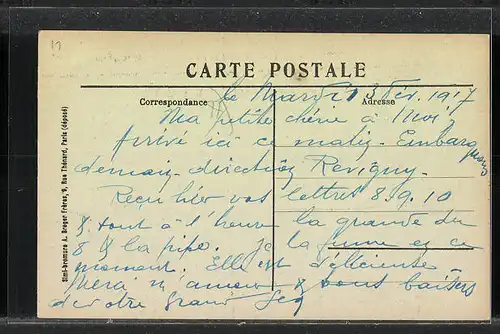 12
CARTE POSTALE
Correspondance
Adresse
le Mardi 13 Fév. 1917
Ma petite chérie à Moi,
Arrivé ici ce matin. Embarquons
demain, direction Revigny.
Reçu hier vos lettres 8. 9. 10
& tout à l'heure la grande du
8 & la pipe. Je la fume en ce
moment. Elle est délicieuse
Merci m amour & vous baisers
de votre grand
Simi-bromure A. Breger Frères, 9, Rue Thénard, Paris (déposé)